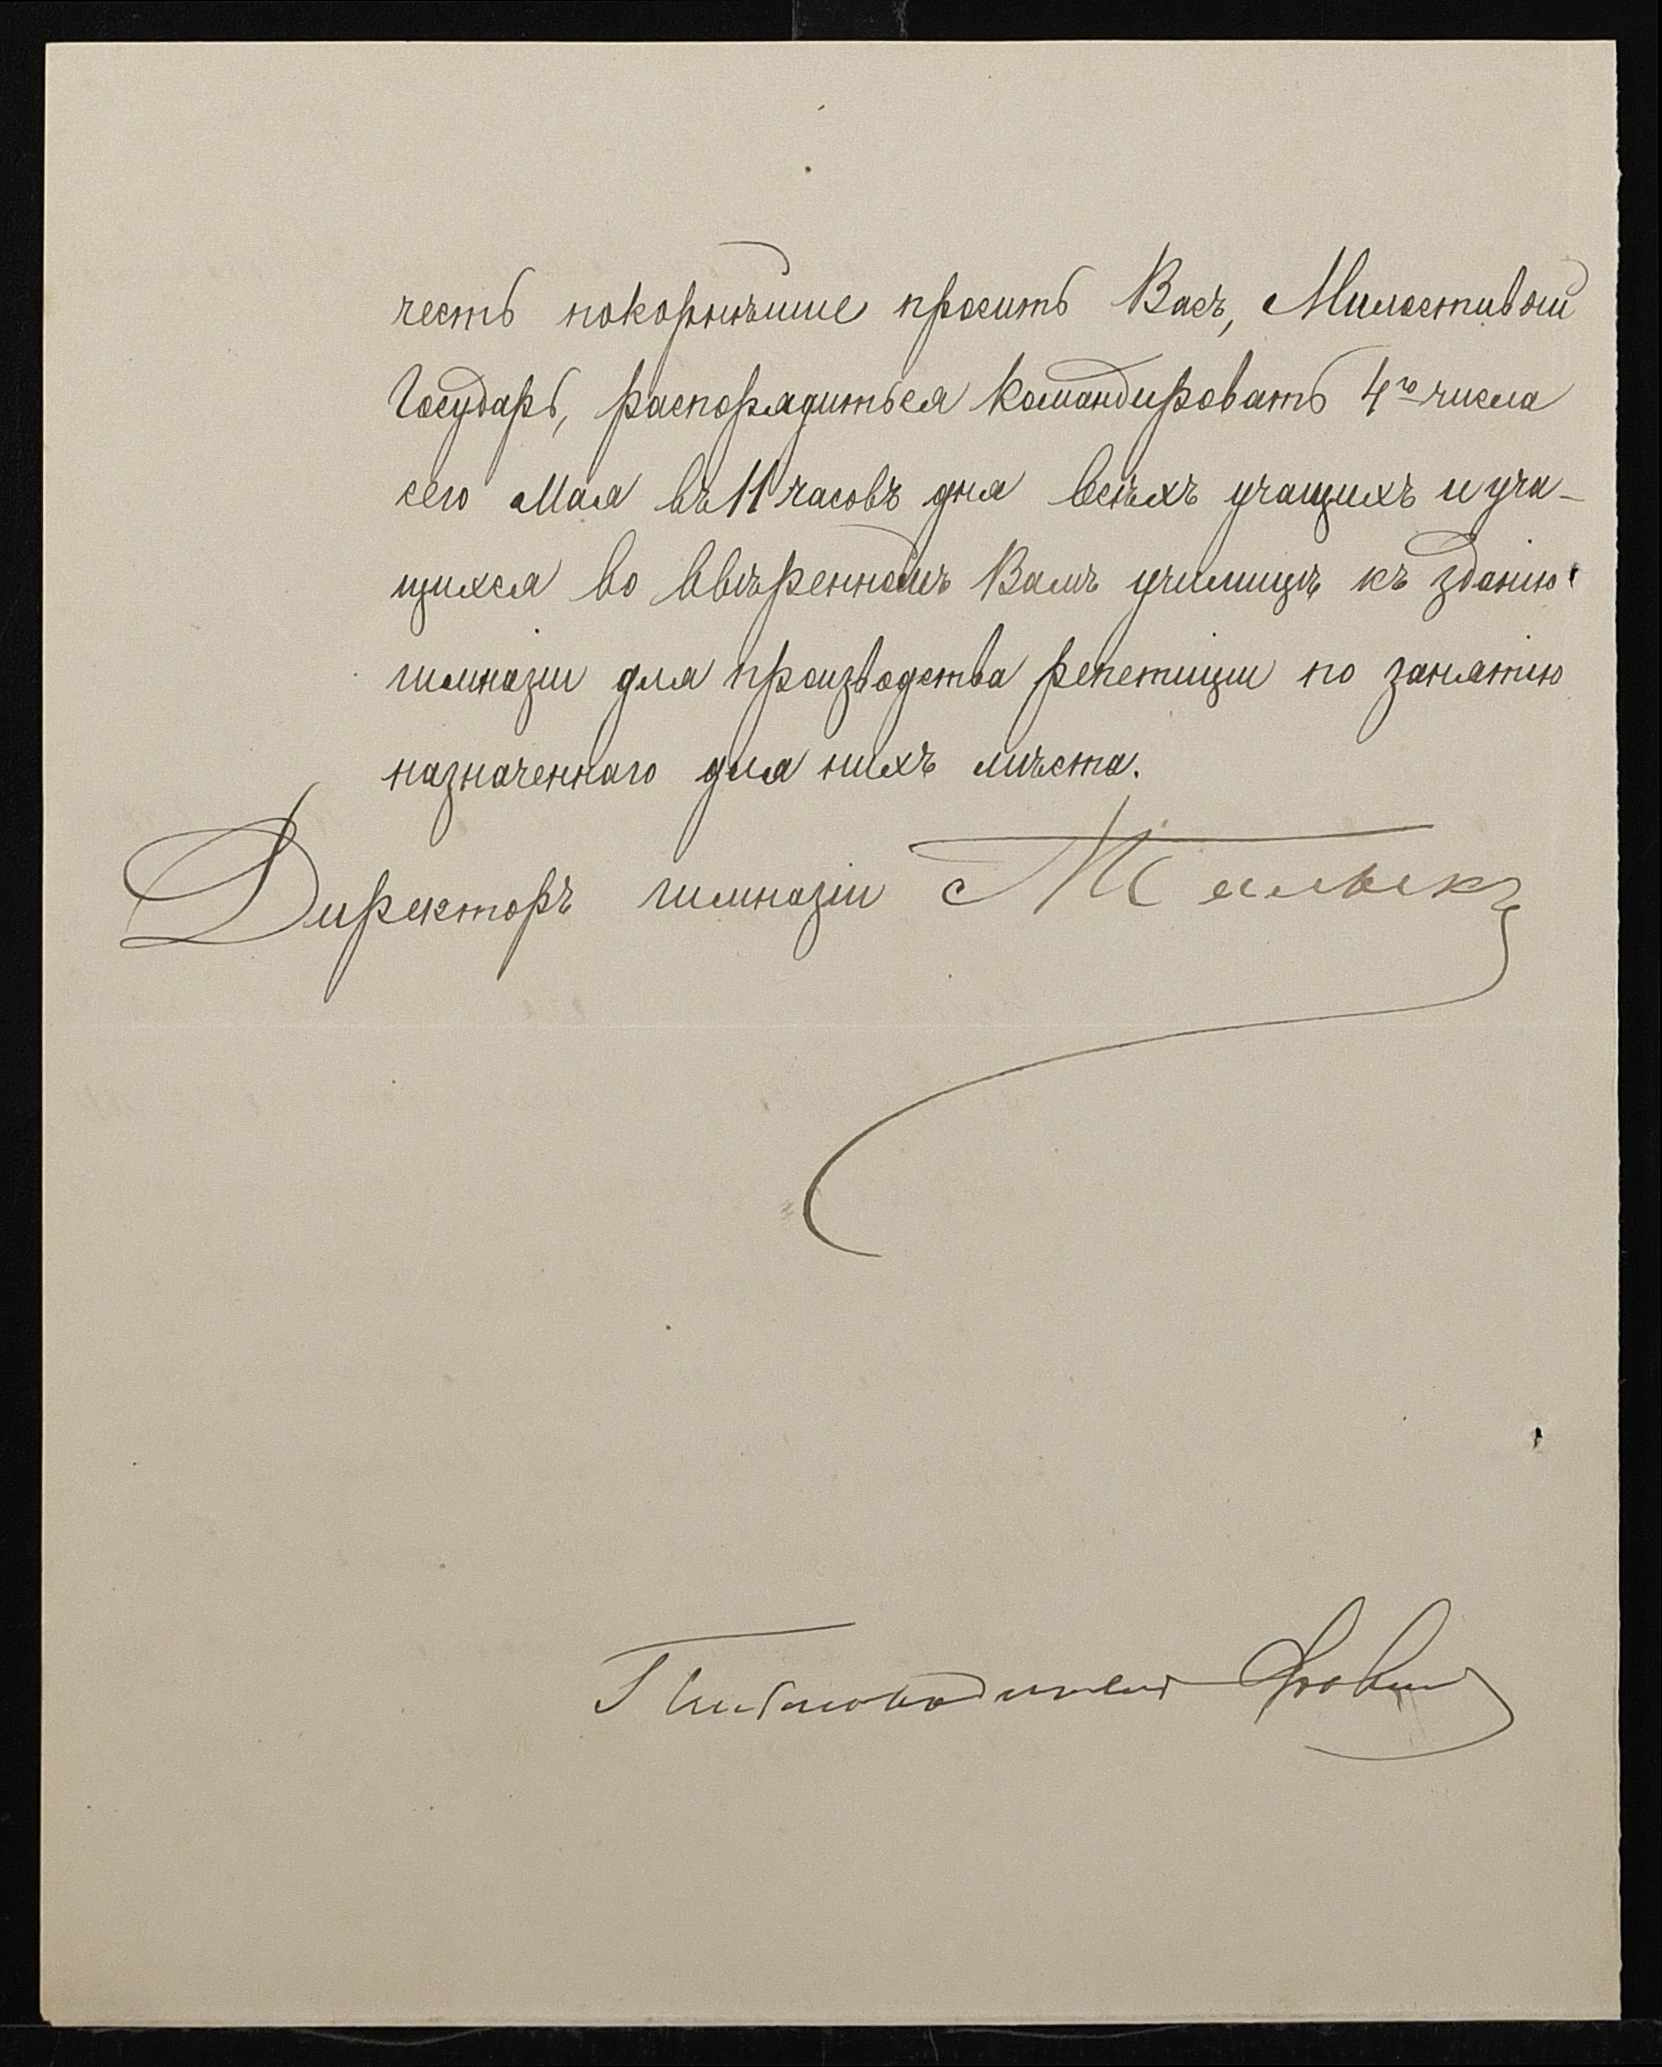 честь покорнѣйше просить Васъ, Милостивый
Государь, распорядиться командировать 4го числа
сего Мая въ 11 часовъ дня всѣхъ учащихъ и уча-
щихся во ввѣренномъ Вамъ училищѣ къ зданію
гимназіи для производства репетиціи по занятію
назначеннаго для нихъ мѣста.
Директоръ гимназіи
Письмоводитель